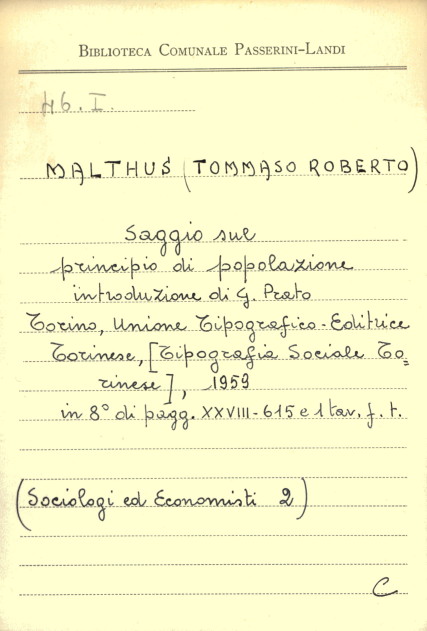 BIBLIOTECA COMUNALE PASSERINI-LANDI
46.I.
MALTHUS (TOMMASO ROBERTO)
Saggio sul
principio di popolazione
introduzione di G. Prato
Torino, Unione Tipografico-Editrice
Torinese, [Tipografia Sociale To=
rinese], 1959
in 8° di pagg. XXVIII-615 e 1 tav. f. t.
(Sociologi ed Economisti 2)
C